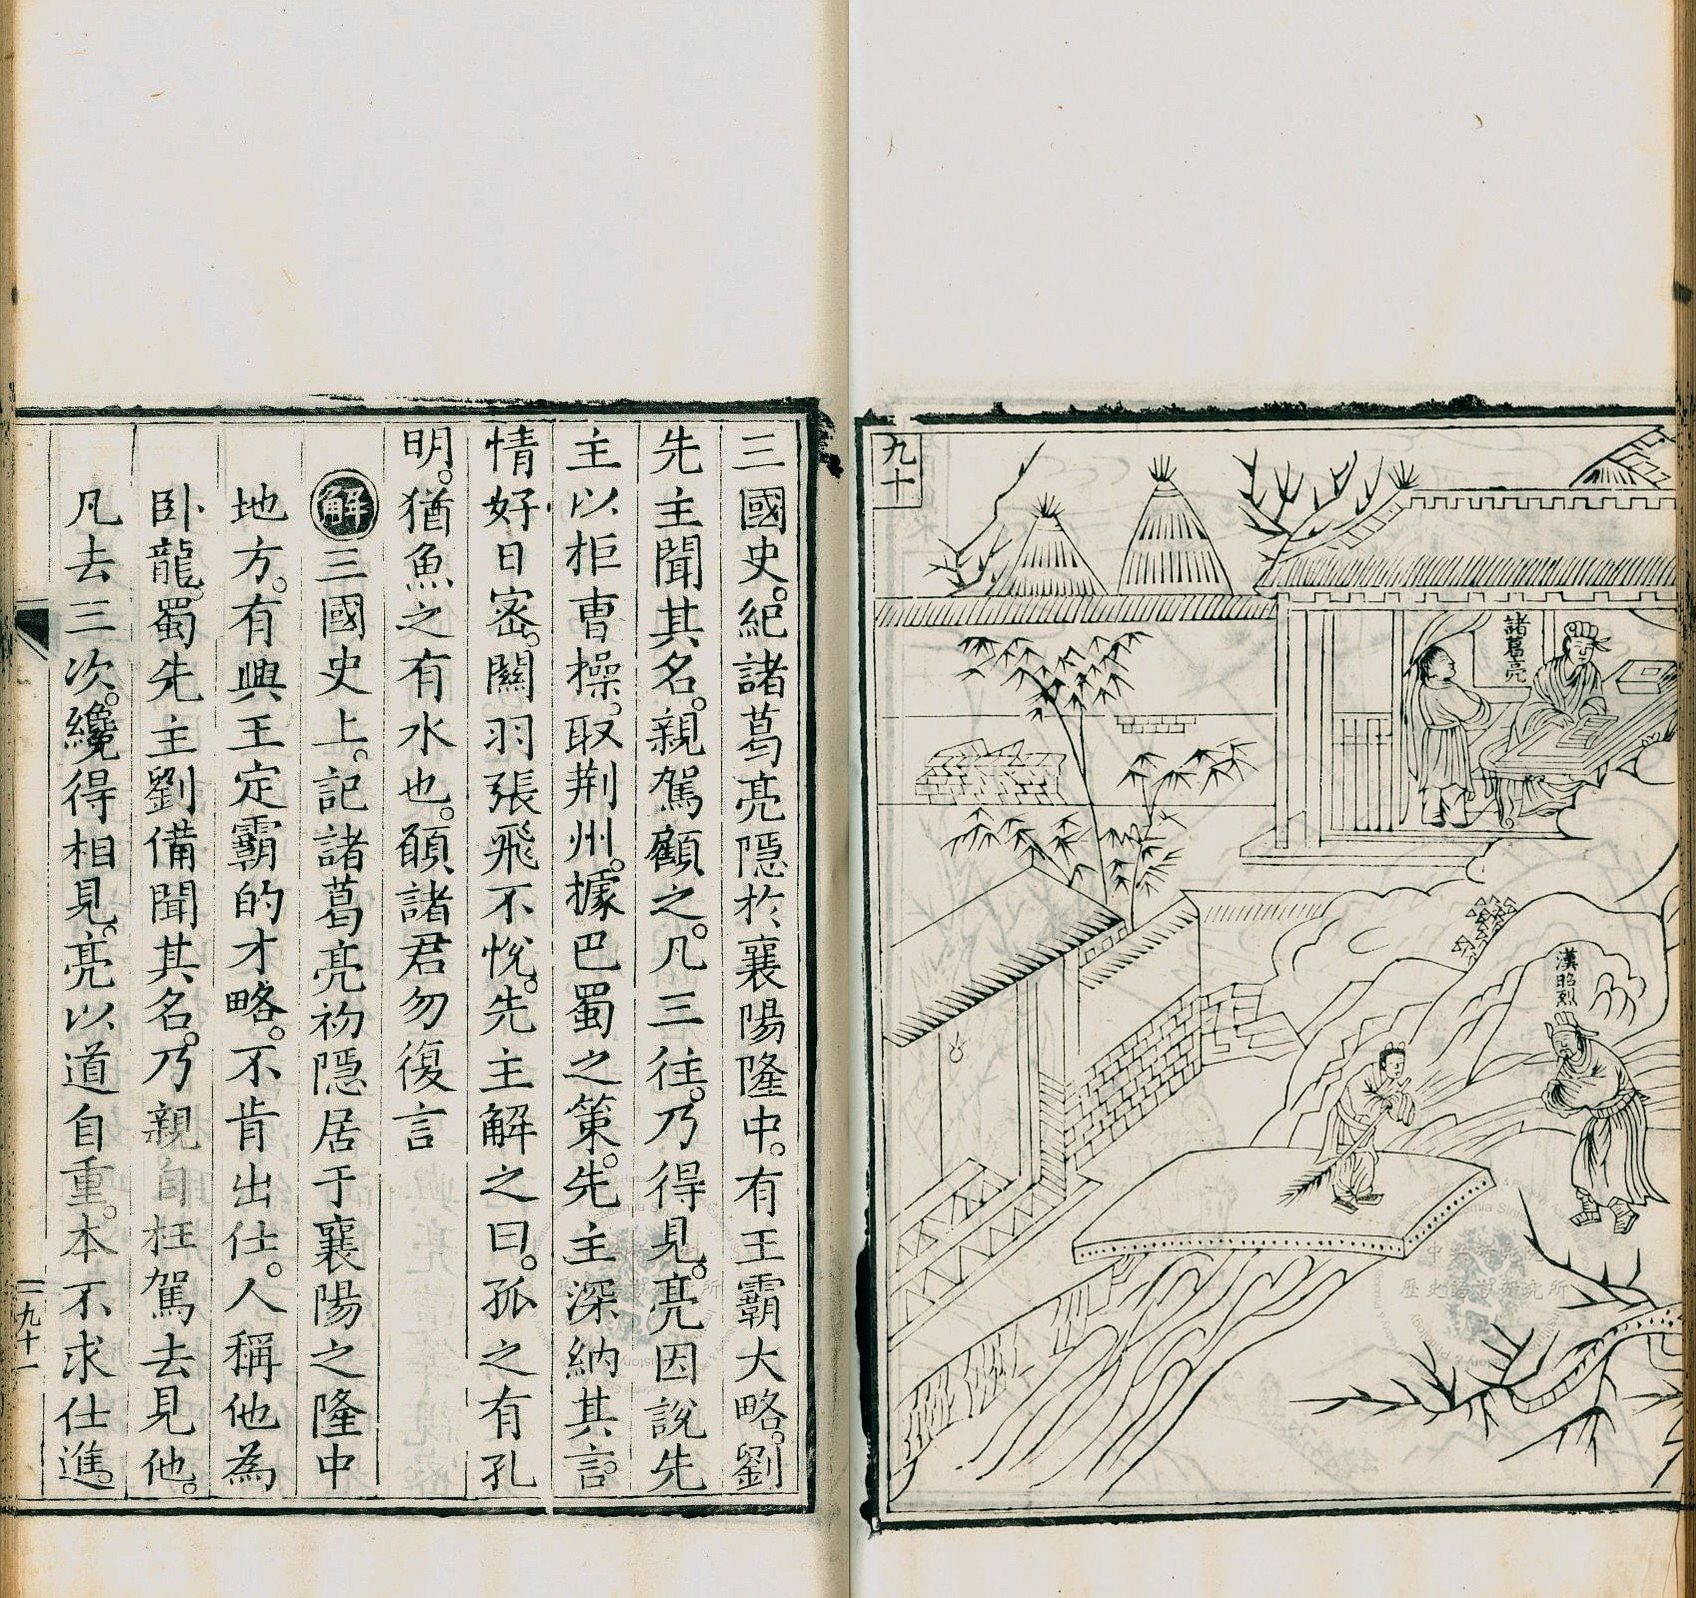 九十
諸葛亮
漢昭烈
三國史。紀諸葛亮隱於襄陽隆中。有王霸大略。劉
先主聞其名。親駕顧之。凡三往。乃得見。亮因說先
主以拒曹操。取荆州。據巴蜀之策。先主深納其言。
情好日密。關羽張飛不悅。先主解之曰。孤之有孔
明。猶魚之有水也。願諸君勿復言
解三國史上。記諸葛亮初隱居于襄陽之隆中
地方。有興王定霸的才略。不肯出仕。人稱他為
卧龍。蜀先主劉備聞其名。乃親自枉駕去見他。
凡去三次。纔得相見。亮以道自重。本不求仕進。
九十一